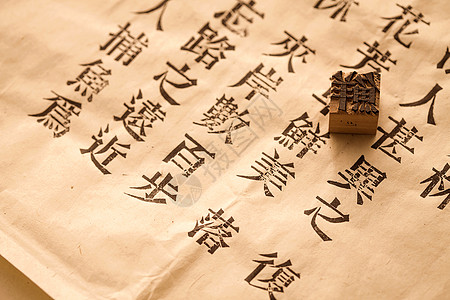 人捕魚為
忘路之遠近
夾岸數百步
花芳鮮美落
人甚異之復
林